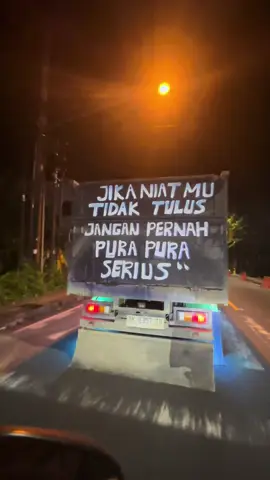 JIKA NIAT MU
TIDAK TULUS
JANGAN PERNAH
PURA PURA
SERIUS"